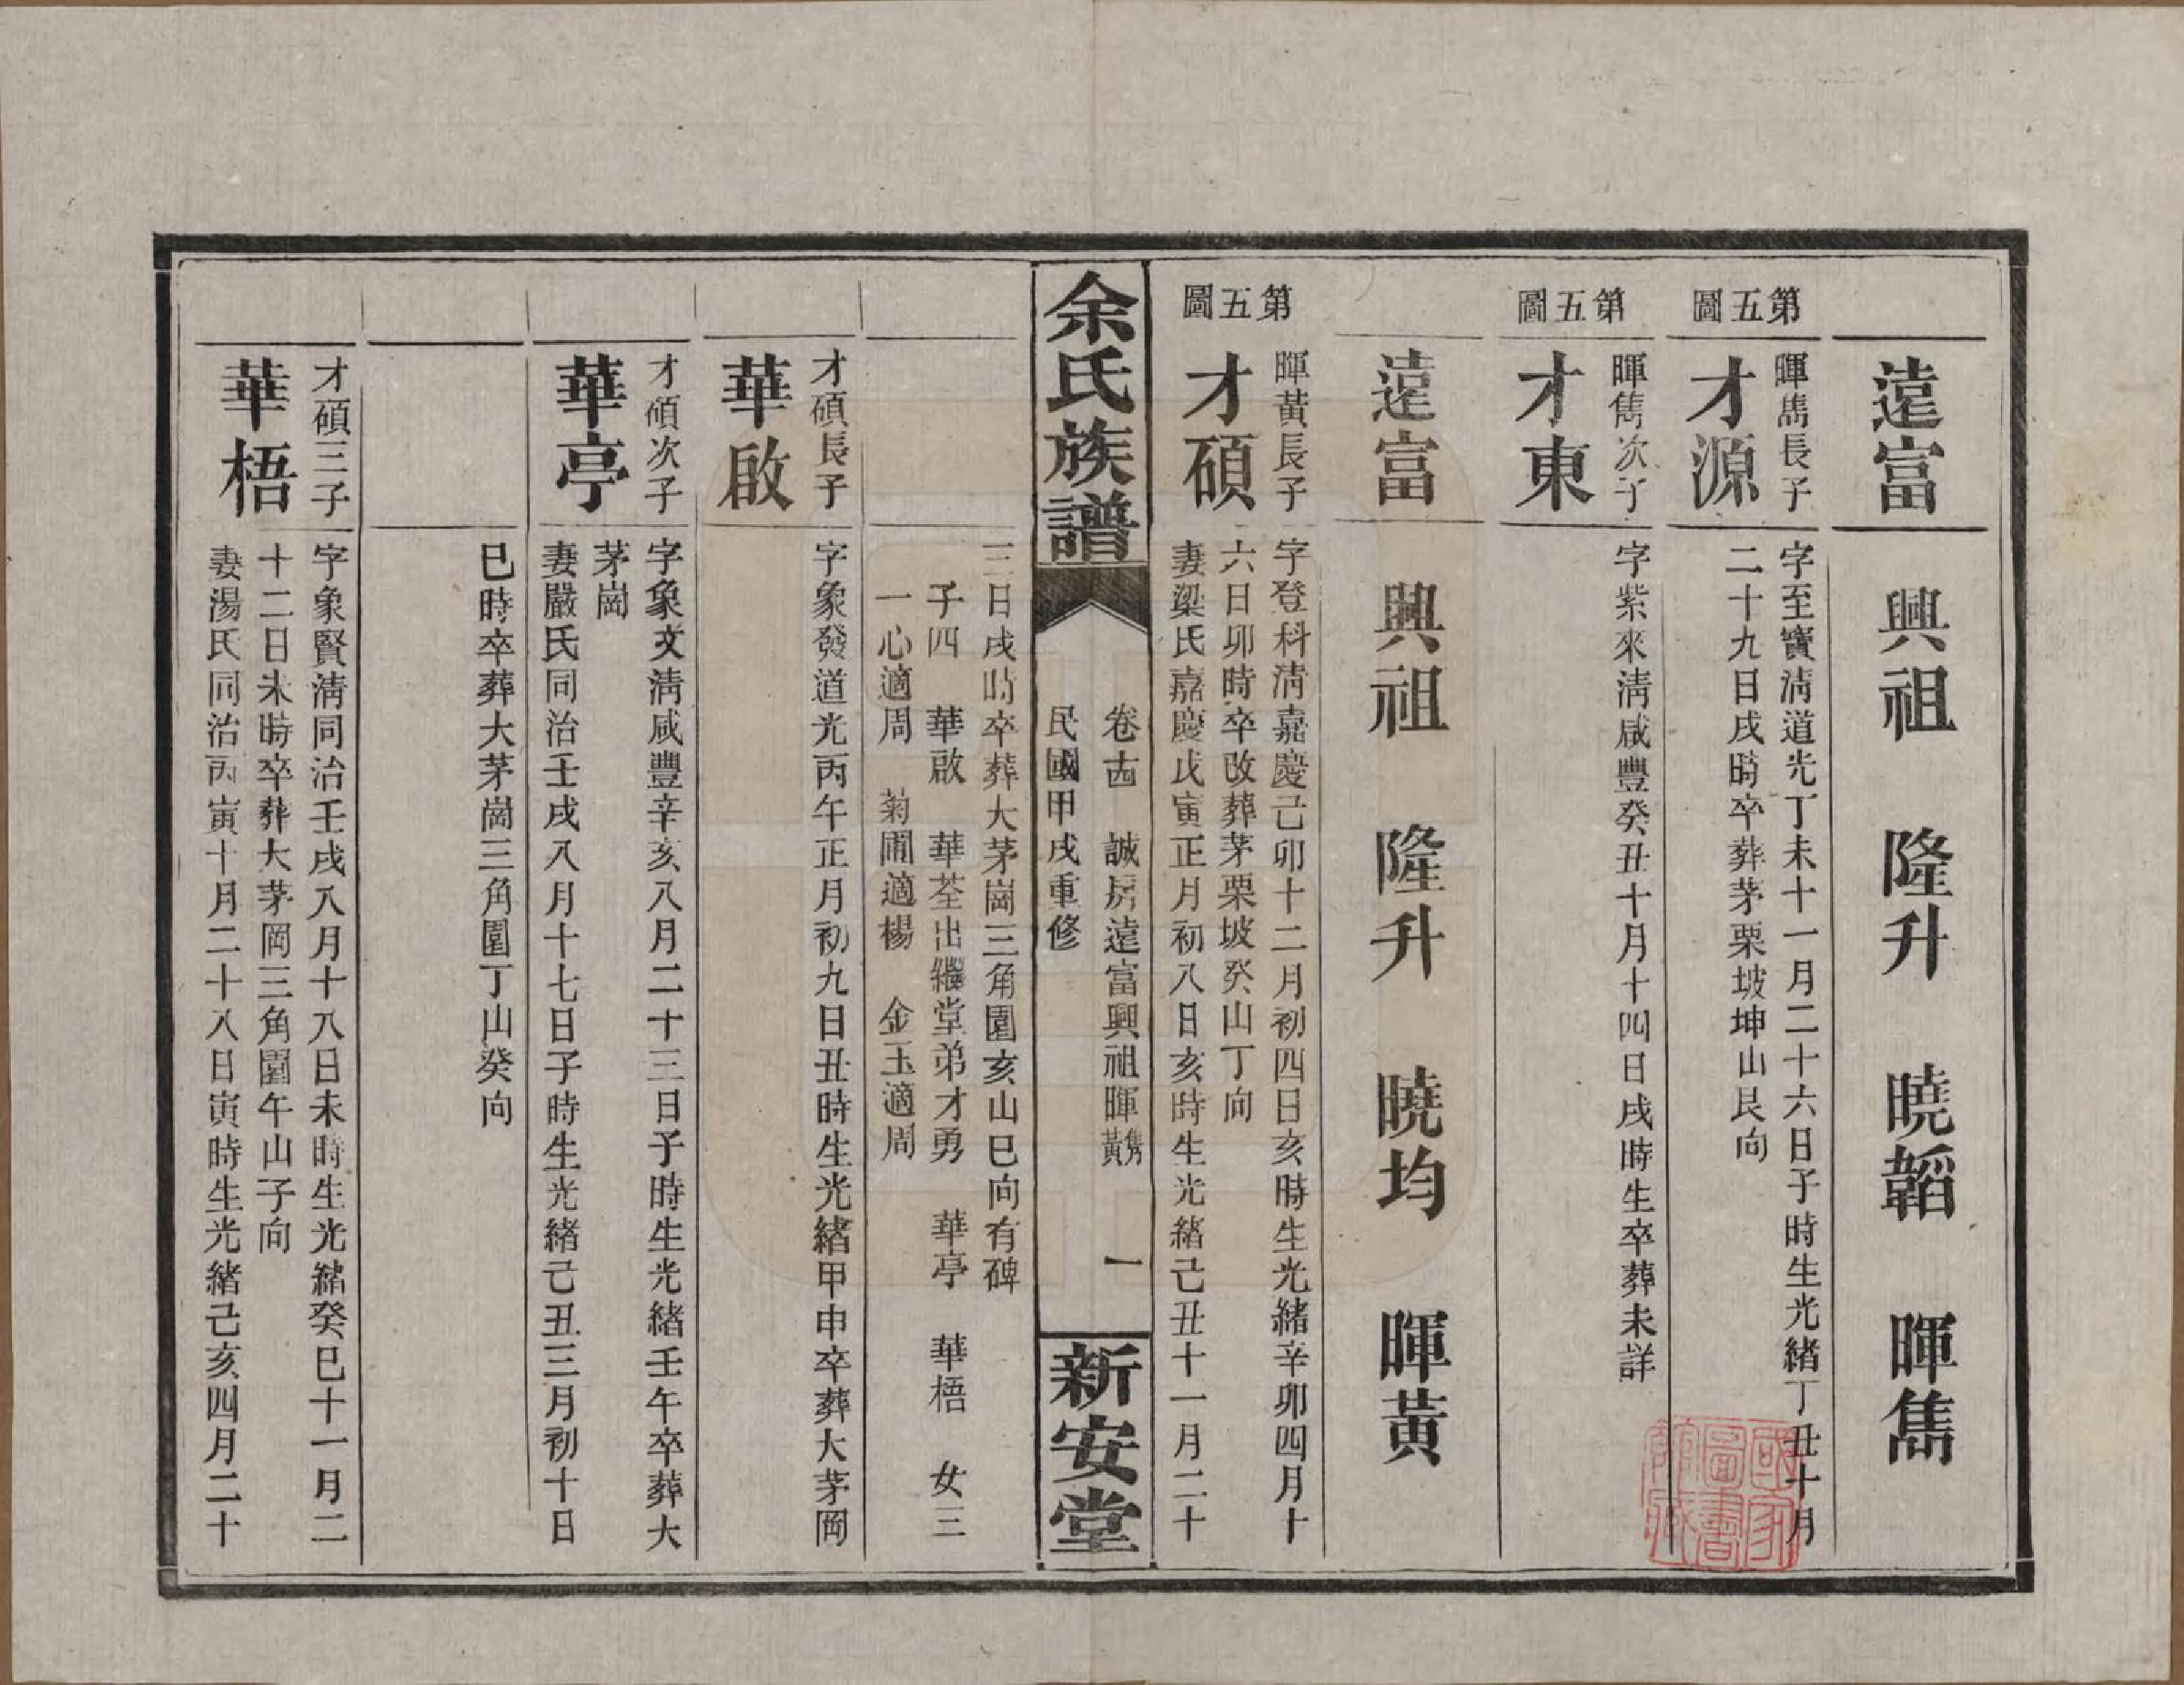 遠富　興祖　隆升　曉韜　暉雋
第五圖
暉雋長子
才源
字至寶淸道光丁未十一月二十六日子時生光緒丁丑十月
二十九日戌時卒葬茅栗坡坤山艮向
第五圖
暉雋次子
才東
字紫來淸咸豐癸丑十月十四日戌時生卒葬未詳
遠富　興祖　隆升　曉均　暉黃
第五圖
暉黃長子
才碩
字登科淸嘉慶己卯十二月初四日亥時生光緒辛卯四月十
六日卯時卒改葬茅栗坡癸山丁向
妻梁氏嘉慶戊寅正月初八日亥時生光緒己丑十一月二十
余氏族譜
卷十四　誠房遠富興祖暉雋黃　一
民國甲戌重修
新安堂
三日戌時卒葬大茅崗三角園亥山巳向有碑
子四　華啟　華荃出繼堂弟才勇　華亭　華梧　女三
一心適周　菊圃適楊　金玉適周
才碩長子
華啟
字象發道光丙午正月初九日丑時生光緒甲申卒葬大茅岡
才碩次子
華亭
字象文淸咸豐辛亥八月二十三日子時生光緒壬午卒葬大
茅崗
妻嚴氏同治壬戌八月十七日子時生光緒己丑三月初十日
巳時卒葬大茅崗三角園丁山癸向
才碩三子
華梧
字象賢淸同治壬戌八月十八日未時生光緒癸巳十一月二
十二日未時卒葬大茅岡三角園午山子向
妻湯氏同治丙寅十月二十八日寅時生光緒己亥四月二十
國家圖書館藏